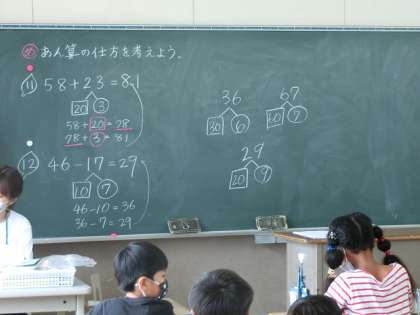 め あん算の仕方を考えよう。
11 58+23=81
20 3
58+20=78
78+3=81
12 46-17=29
10 7
46-10=36
36-7=29
36
30 6
67
60 7
29
20 9